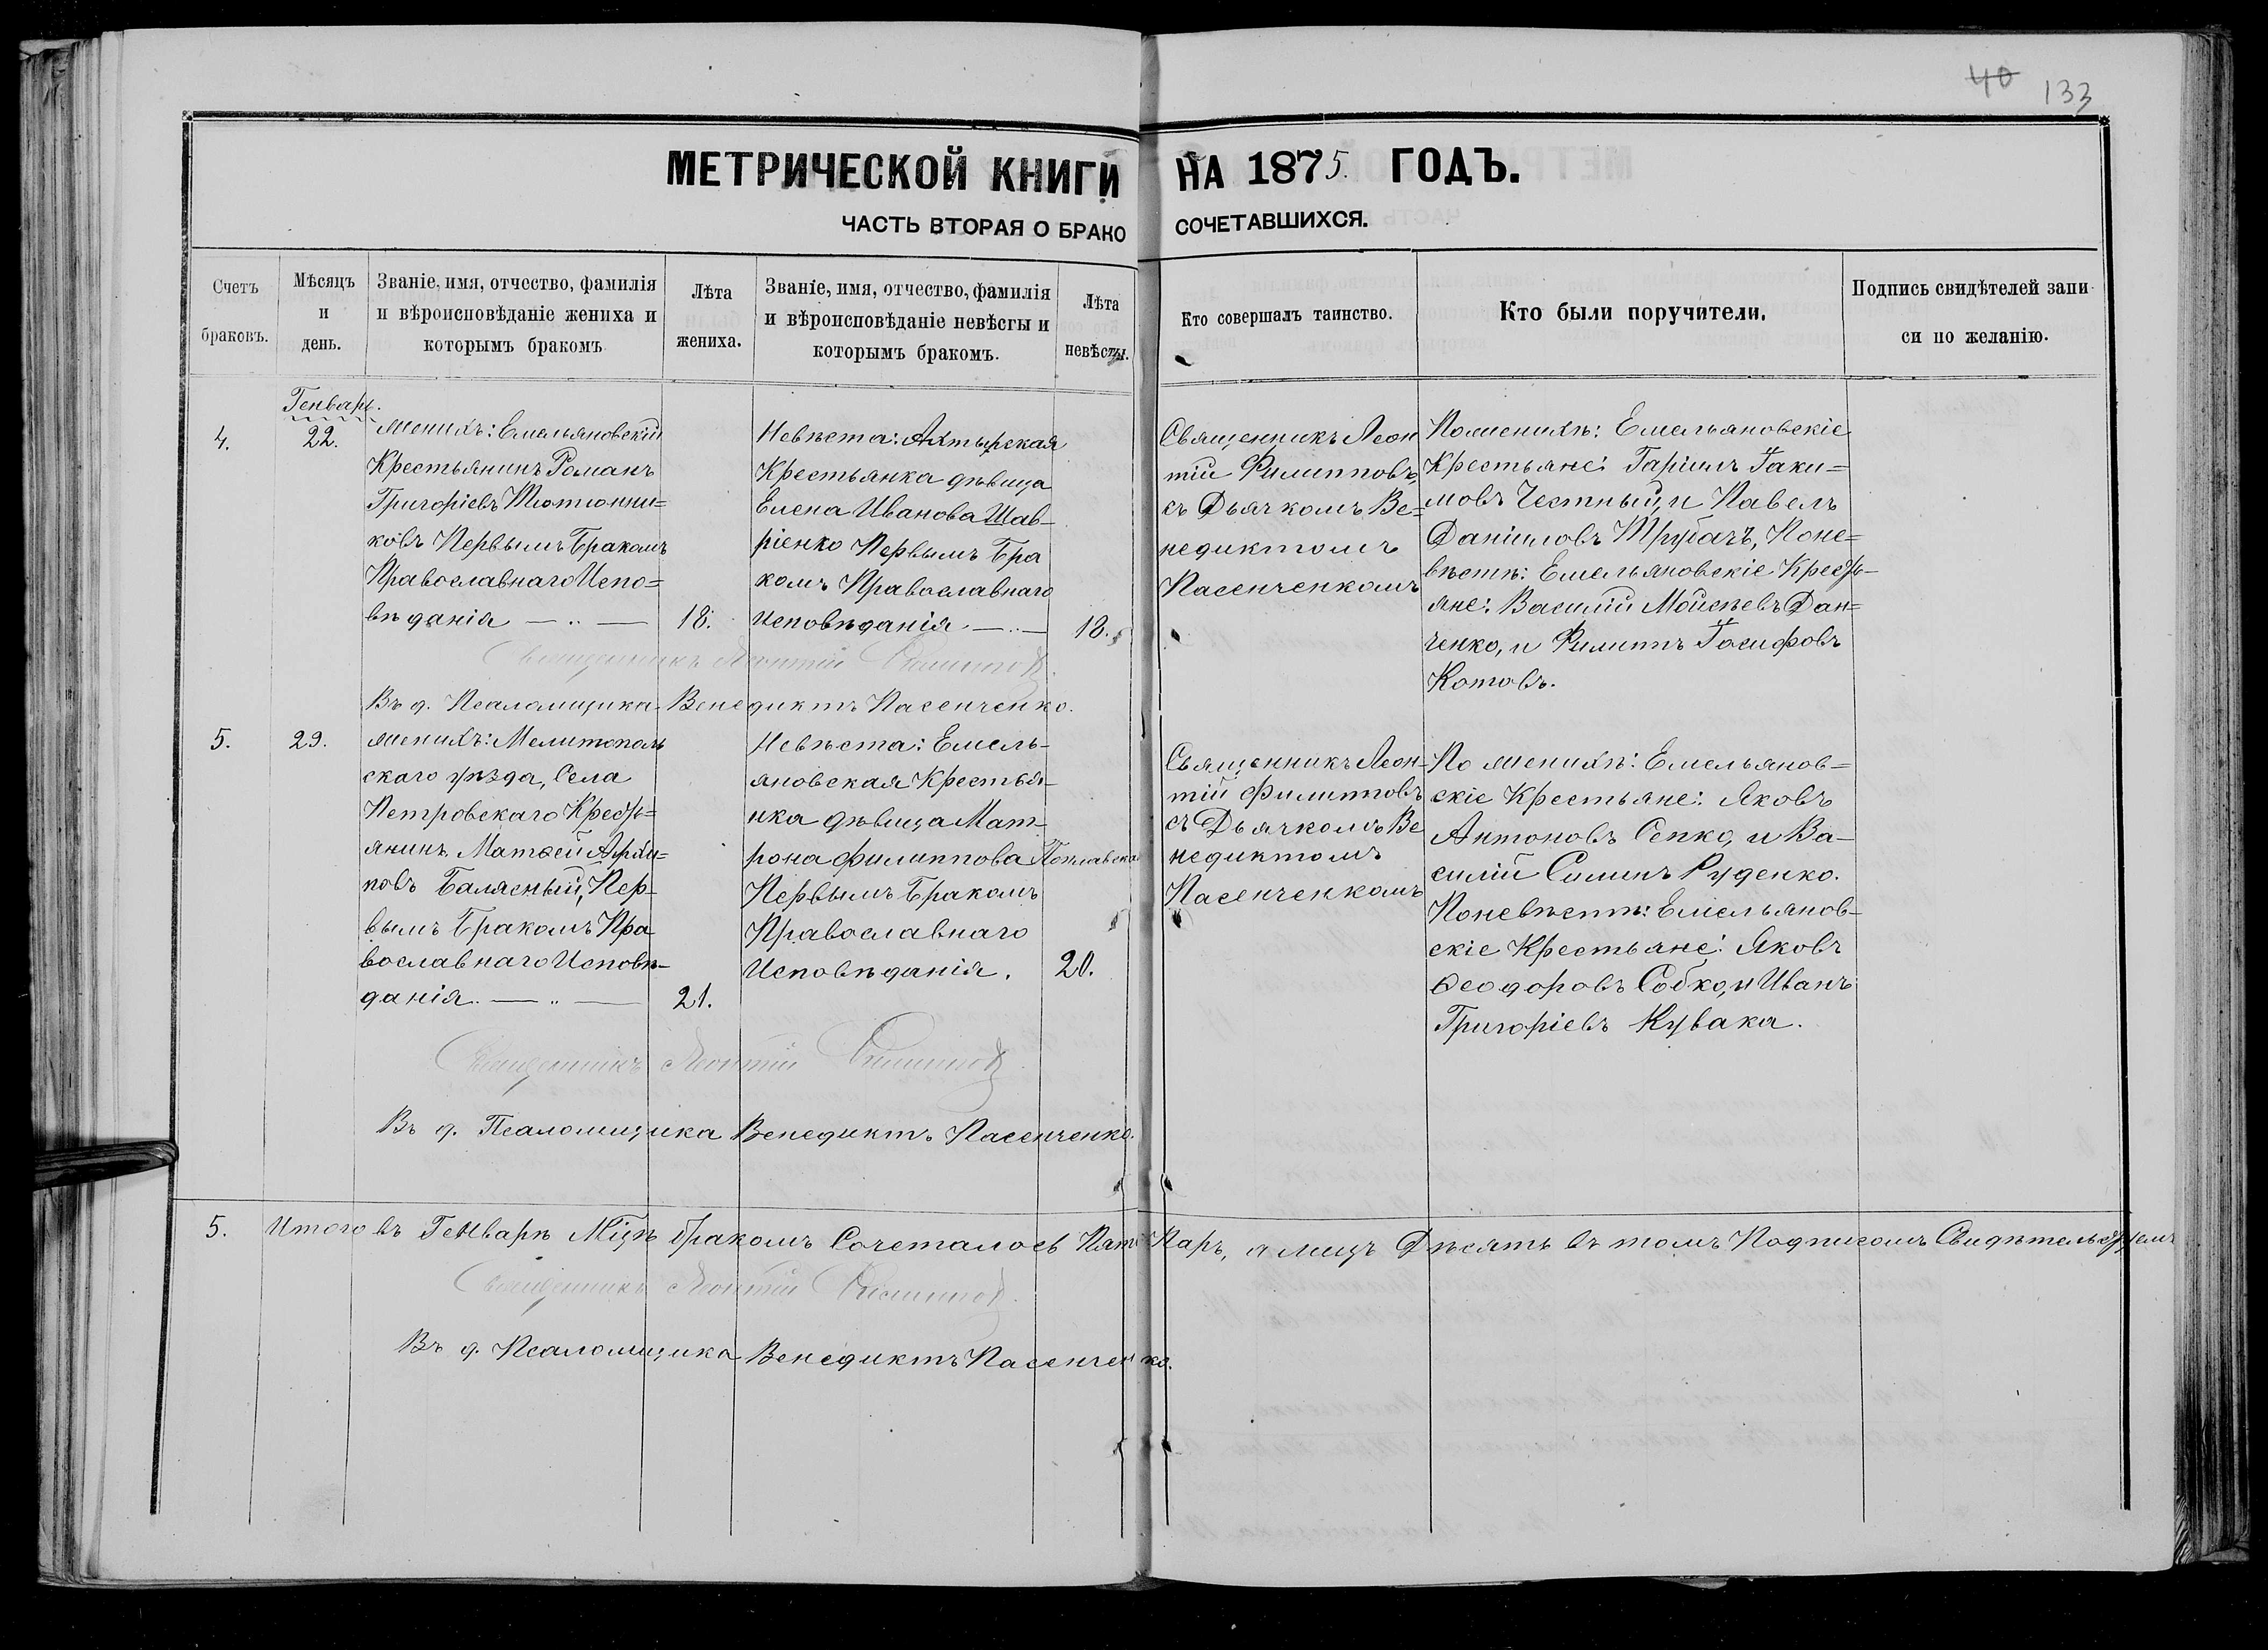 40 133
МЕТРИЧЕСКОЙ КНИГИ НА 1875. ГОДЪ.
ЧАСТЬ ВТОРАЯ О БРАКО СОЧЕТАВШИХСЯ.
Счетъ браковъ.
Мѣсяцъ и день.
Званіе, имя, отчество, фамилія
и вѣроисповѣданіе жениха и
которымъ бракомъ
Лѣта жениха.
Званіе, имя, отчество, фамилія
и вѣроисповѣданіе невѣсты и
которымъ бракомъ.
Лѣта невѣсты.
Кто совершалъ таинство.
Кто были поручители.
Подпись свидѣтелей запи
си по желанію.
Генварь.
4.
22.
Женихъ: Емельяновскій
Крестьянинъ Романъ
Григоріевъ Тютюнни=
ковъ Первымъ Бракомъ
Православнаго Испо=
вѣданія
18.
Невѣста: Ахтырская
Крестьянка дѣвица
Елена Иванова Шав-
ріенко Первымъ Бра
комъ Православнаго
Исповѣданія
18.
Священникъ Леон
тій Филипповъ,
съ Дьячкомъ Ве=
недиктомъ
Пасенченкомъ
Поженихѣ: Емельяновскіе
Крестьяне: Гаріилъ Іаки=
мовъ Честный, и Павелъ
Даніиловъ Трубачъ, Поне=
вѣстѣ: Емельяновскіе Кресть-
яне: Василій Мойсѣевъ Дан=
ченко, и Филиппъ Іосифовъ
Котовъ.
Священникъ Леонтій Филиппов
Въ д. Псаломщика Венедиктъ Пасенченко.
5.
29.
Женихъ: Мелитополь
скаго уѣзда, Села
Петровскаго Кресть=
янинъ Матѳей Архи=
повъ Балясный, Пер-
вымъ Бракомъ Пра
вославнаго Исповѣ-
данія
21.
Невѣста: Емель-
яновская Крестья-
нка дѣвица Мат-
рона Филиппова
Первымъ Бракомъ
Православнаго
Исповѣданія.
20.
Священникъ Леон-
тій Филипповъ
съ Дьячкомъ Ве
недиктомъ
Пасенченкомъ
По женихѣ: Емельянов=
скіе Крестьяне: Яковъ
Антоновъ Сепко, и Ва-
силій Симинъ Руденко.
Поневѣстѣ: Емельянов-
скіе Крестьяне: Яковъ
Ѳеодоровъ Собко, и Иванъ
Григоріевъ Кувака.
Священникъ Леонтій Филиппов
Въ д. Псаломщика Венедиктъ Пасенченко.
5. Итого въ Генварѣ Мцѣ бракомъ Сочеталось Пять Паръ, а лицъ Десять въ томъ Подписомъ Свидѣтельствуемъ
Священникъ Леонтій Филиппов
Въ д. Псаломщика Венедиктъ Пасенченко.